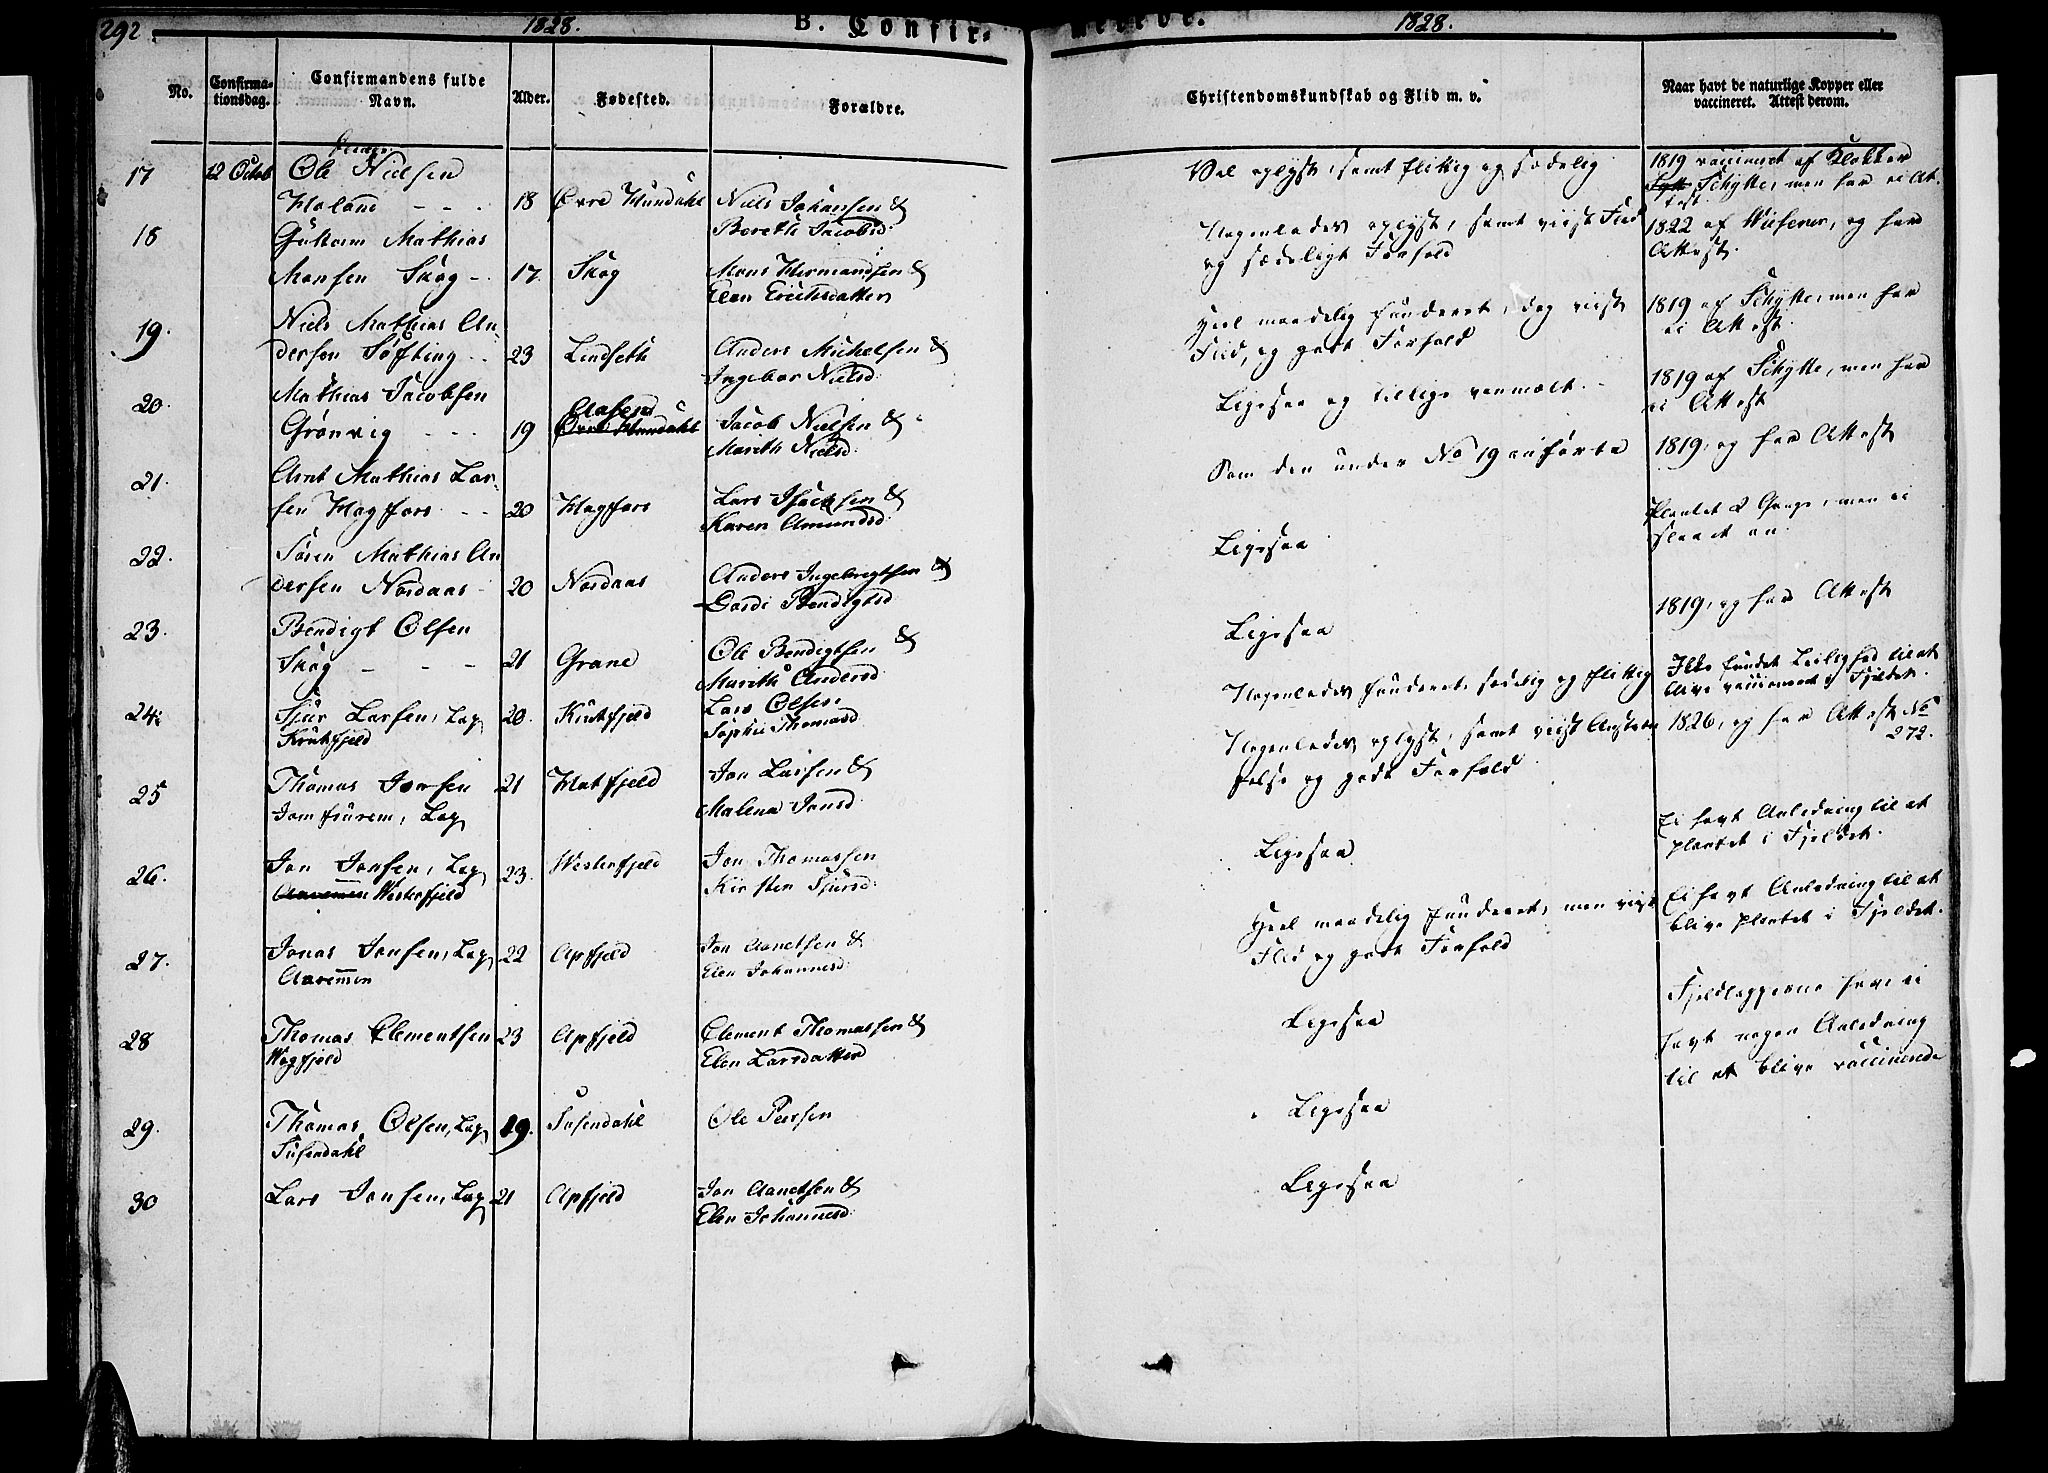 292
1828.
B. Confir-
1828.
No.
Confirma-
tionsdag.
Confirmandens fulde
Navn.
Alder.
Fødested.
Forældre.
Christendomskundskab og Flid m. v.
Naar havt de naturlige Kopper eller
vaccineret. Attest derom.
17 12 Octob Ole Nielsen
Holand - - - 18 Øvre Hundahl Niels Johansen &
Bereth Jacobsd.
Vel oplyst, samt flittig og sædelig
1819 vaccineret af Klokker
Schytte, men har ei At-
test
18 Guttorm Mathias
Monsen Skog - 17 Skog Mons Hermandsen &
Elen Erichsdatter
Nogenledes oplyst, samt viist Flid
og sædeligt Forhold
1822 af Wisener, og har
Attest.
19. Niels Mathias An-
dersen Søfting - - 23 Lindseth Anders Michelsen &
Ingebor Nielsd.
Heel maadelig funderet, dog viist
Flid, og godt Forhold
1819 af Schytte, men har
ei Attest.
20. Mathias Jacobsen
Grønvig - - - 19 Aasen
Øvre Hundahl Jacob Nielsen &
Marith Nielsd.
Ligesaa og tillige vanmælt. -
1819 af Schytte, men har
ei Attest
21. Arnt Mathias Lar-
sen Hagfors - - 20 Hagfors Lars Isacksen &
Karen Amundsd.
Som den under No 19 anførte
1819, og har Attest
22. Søren Mathias An
dersen Nordaas - 20 Nordaas Anders Ingebregtsen &
Dordi Bendigtsd.
Ligesaa
Plantet 2 Gange, men ei
slaaet an.
23. Bendigt Olsen
Skog - - - 21 Grane Ole Bendigtsen &
Marith Andersd.
Ligesaa
1819, og har Attest
24. Sjur Larsen, Lap 20. Krutfjeld Lars Olsen
Krutfjeld Sophie Thomasd.
Nogenledes funderet, sædelig og flittig
Ikke fundet Leilighed til at
blive vaccineret i Fjeldet.
25 Thomas Jonsen 21 Hatfjeld Jon Larsen &
Lap Malena Jonsd.
Nogenledes oplyst, samt viist Anstræn-
gelse og godt Forhold
1826, og har Attest No
272.
26. Jon Jonsen, Lap 23. Westerfjeld Jon Thomassen
Westerfjeld Kirsten Sjursd.
Ligesaa
Ei havt Anledning til at
plantet i Fjeldet.
27. Jonas Jonsen, Lap 22 Apfjeld Jon Aanetsen &
Elen Johannesd.
Heel maadelig funderet, men viist
Flid og godt Forhold
Ei havt Anledning til at
blive plantet i Fjeldet.
28 Thomas Clementsen 23 Apfjeld Clement Thomassen &
Elen Larsdatter
Ligesaa
Fjeldlapperne have ei
havt nogen Anledning
til at blive vaccinerede
29. Thomas Olsen, Lap 19. Susendahl Ole Persen
Susendahl
Ligesaa
30 Lars Jonsen, Lap 21 Apfjeld Jon Aanetsen &
Elen Johannesd.
Ligesaa